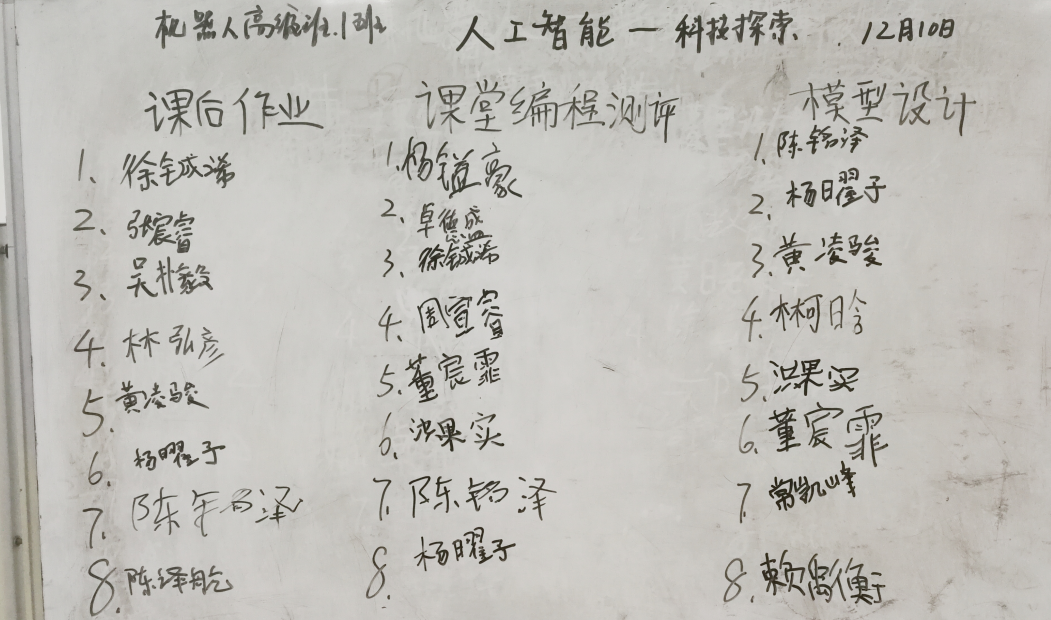 机器人高级班.1班 人工智能一科技探索 12月10日
课后作业
1、徐铖浠
2、张宸睿
3、吴朴毅
4、林弘彦
5、黄凌骏
6、杨曜予
7、陈铭泽
8、陈绎航
课堂编程测评
1、杨镒豪
2、卓德盛
3、徐铖浠
4、周宣睿
5、董宸霏
6、洪果实
7、陈铭泽
8、杨曜予
模型设计
1、陈铭泽
2、杨曜予
3、黄凌骏
4、林柯昑
5、洪果实
6、董宸霏
7、常凯峰
8、赖禹衡